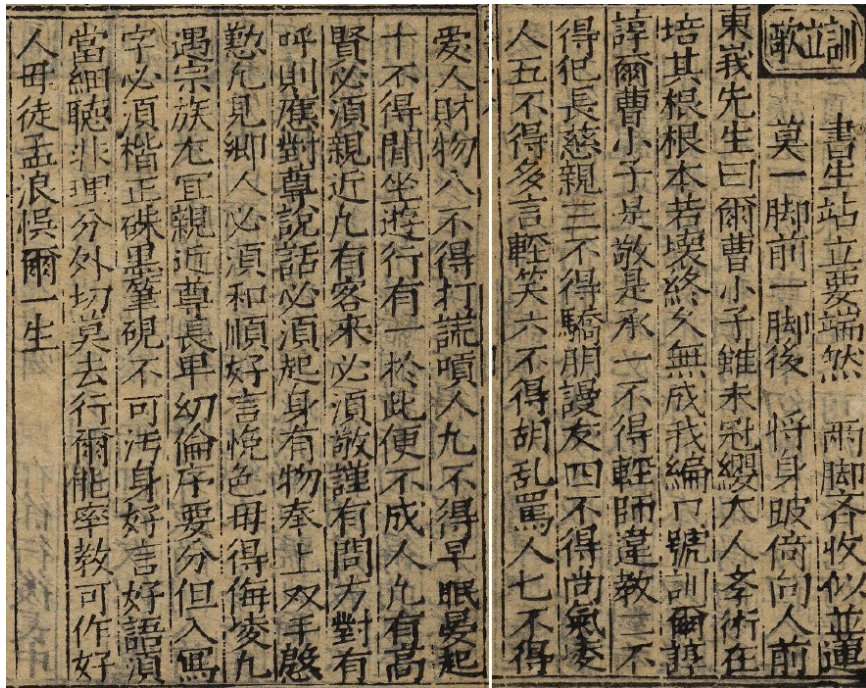 訓立歌
書生站立要端然　兩脚齐收似並蓮
莫一脚前一脚後　将身跛倚向人前
東峩先生曰爾曹小子雖未冠纓大人李術在
培其根根本若壞終久無成我編口號訓爾諄
諄爾曹小子是敬是承一不得輊師違教二不
得犯長慈親三不得驕朋謾友四不得尚氣凌
人五不得多言輊笑六不得胡乱罵人七不得
爱人財物八不得打謊嗔人九不得早眠晏起
十不得閒坐遊行有一於此便不成人凢有高
賢必須親近凢有客來必須敬謹有問方對有
呼則應對尊說話必須起身有物奉上双手慇
懃凢見鄉人必須和順好言悅色毋得侮凌凢
遇宗族尤宜親近尊長卑幼倫序要分但入寫
字必須楷正硃黒筆硯不可污身好言好語須
當細聴非理分外切莫去行爾能率教可作好
人毋徒孟浪悞爾一生